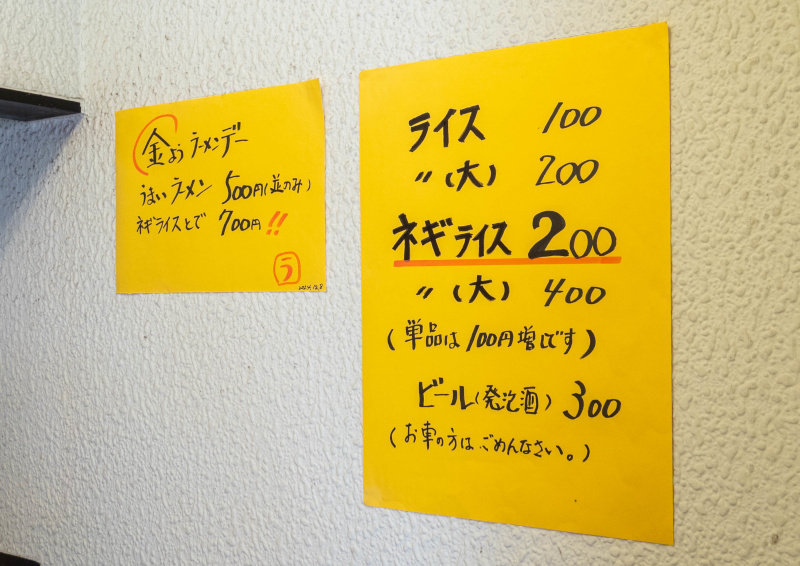 金よう ラーメンデー
うまいラーメン 500円(並のみ)
ネギライスとで 700円!!
う
ライス 100
〃(大) 200
ネギライス 200
〃(大) 400
(単品は100円増しです)
ビール(発泡酒) 300
(お車の方はごめんなさい。)